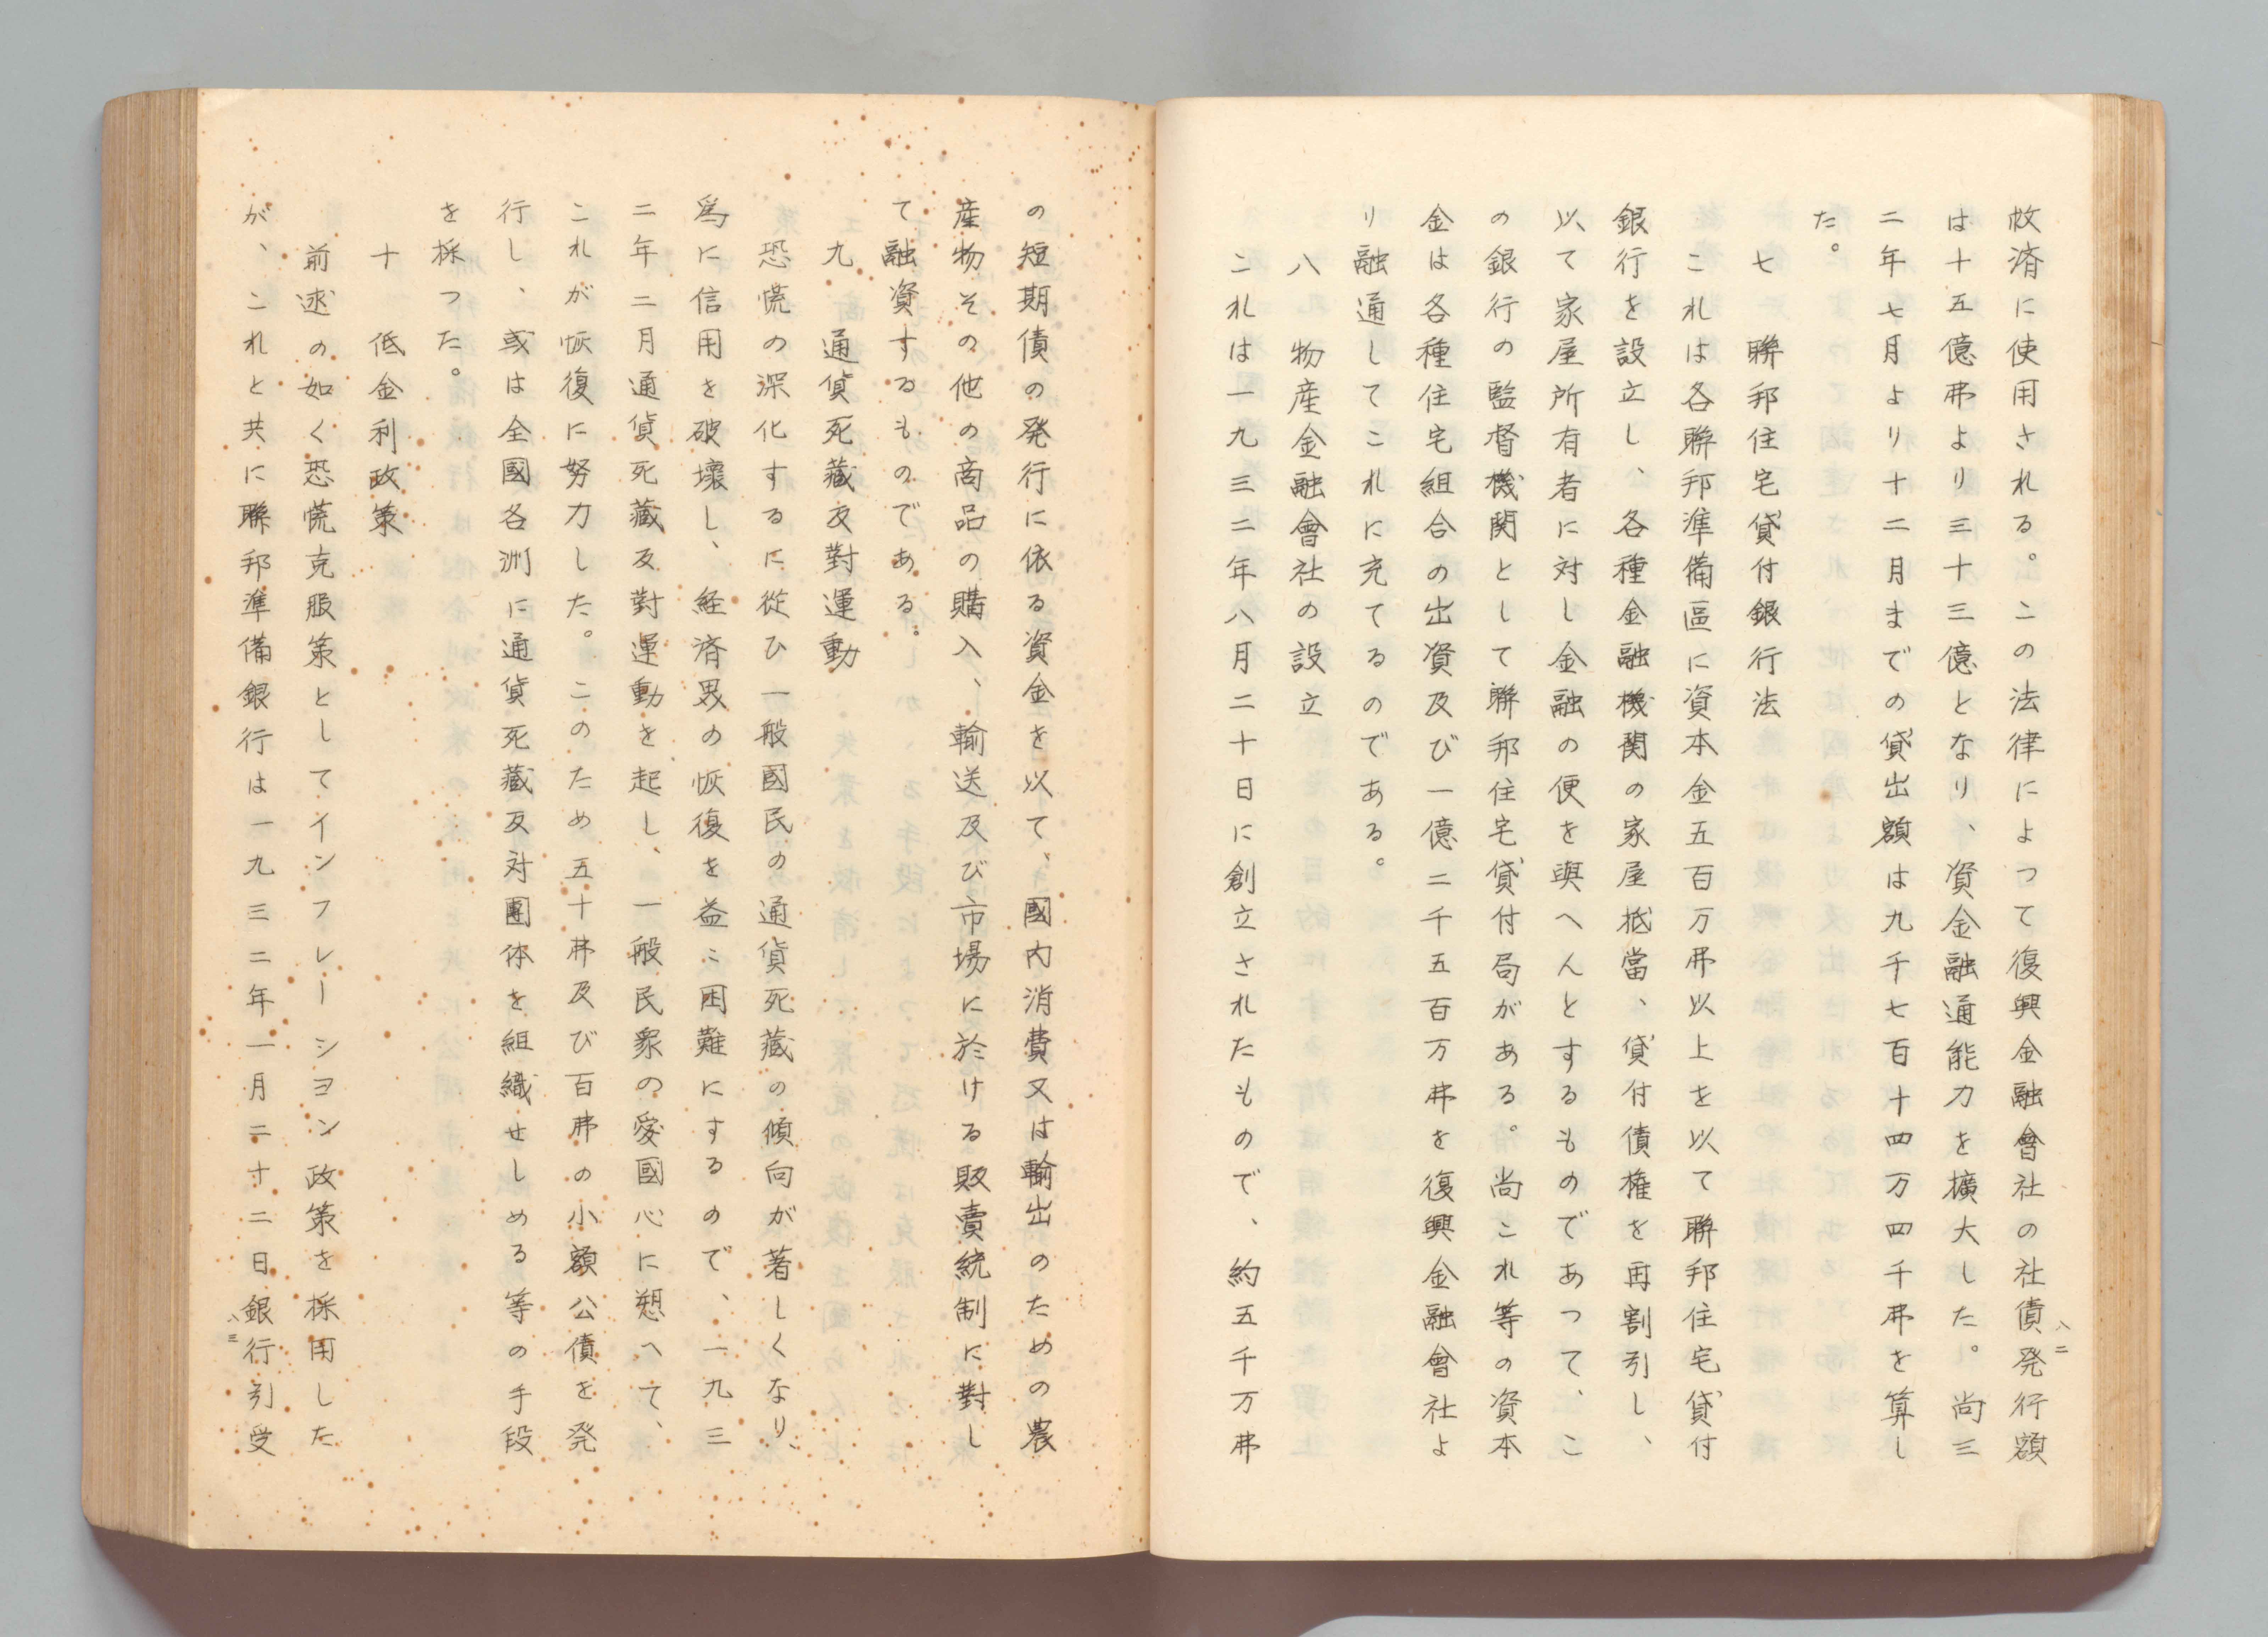 救済に使用される。この法律によつて復興金融會社の社債発行額
は十五億弗より三十三億となり、資金融通能力を擴大した。尚三
二年七月より十二月までの貸出額は九千七百十四万四千弗を算し
た。
七 聯邦住宅貸付銀行法
これは各聯邦準備區に資本金五百万弗以上を以て聯邦住宅貸付
銀行を設立し、各種金融機関の家屋抵當、貸付債権を再割引し、
以て家屋所有者に対し金融の便を與へんとするものであつて、こ
の銀行の監督機関として聯邦住宅貸付局がある。尚これ等の資本
金は各種住宅組合の出資及び一億二千五百万弗を復興金融會社よ
り融通してこれに充てるのである。
八 物産金融會社の設立
これは一九三二年八月二十日に創立されたもので、約五千万弗
八二
の短期債の発行に依る資金を以て、國内消費又は輸出のための農
産物その他の商品の購入、輸送及び市場に於ける販賣統制に對し
て融資するものである。
九 通貨死藏反對運動
恐慌の深化するに從ひ一般國民の通貨死蔵の傾向が著しくなり、
爲に信用を破壞し、経済界の恢復を益ミ困難にするので、一九三
二年二月通貨死藏反對運動を起し、一般民衆の愛國心に愬へて、
これが恢復に努力した。このため五十弗及び百弗の小額公債を発
行し、或は全國各洲に通貨死蔵反対團体を組織せしめる等の手段
を採つた。
十 低金利政策
前述の如く恐慌克服策としてインフレーシヨン政策を採用した
が、これと共に聯邦準備銀行は一九三二年一月二十二日銀行引受
八三